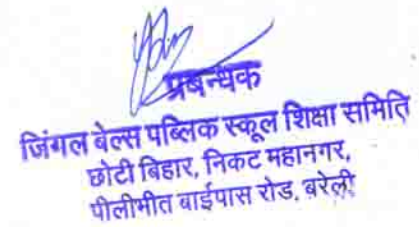 प्रबन्धक
जिंगल बेल्स पब्लिक स्कूल शिक्षा समिति
छोटी बिहार, निकट महानगर,
पीलीभीत बाईपास रोड, बरेली